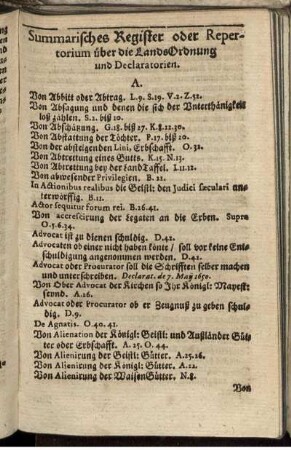 Summarisches Register oder Reper-
torium über die LandsOrdnung
und Declaratorien.
A.
Von Abbitt oder Abtrag. L.9. S.19. V.1. Z.52.
Von Absagung und denen die sich der Unterthänigkeit
loß zahlen. S.1. biß 10.
Von Abschätzung. G.18. biß 27. K.8.11.30.
Von Abstattung der Töchter. P.17. biß 20.
Von der absteigenden Lini, Erbschafft. O.32.
Von Abtrettung eines Gutts. K.15. N.13.
Von Abtrettung bey der LandTaffel. L.11.12.
Von abwesender Privilegien. B.22.
In Actionibus realibus die Geistl: den Judici sæculari un-
terworffig. B.11.
Actor sequitur forum rei. B.16.41.
Von accrescirung der Legaten an die Erben. Supra
O.5.6.34.
Advocat ist zu dienen schuldig. D.42.
Advocaten ob einer nicht haben könte / soll vor keine Ent-
schuldigung angenommen werden. D.41.
Advocat oder Procurator soll die Schrifften selber machen
und unterschreiben. Declarat. de 7. Maij 1650.
Von Ober Advocat der Kirchen so Ihr Königl: Mayest:
seynd. A.16.
Advocat oder Procurator ob er Zeugnuß zu geben schul-
dig. D.9.
De Agnatis. O.40.41.
Von Alienation der Königl: Geistl: und Außländer Güt-
ter oder Erbschafft. A.25. O.44.
Von Alienirung der Geistl: Gütter. A.25.26.
Von Alienirung der Königl: Gütter. A.12.
Von Alienirung der WaisenGütter. N.8.
Von